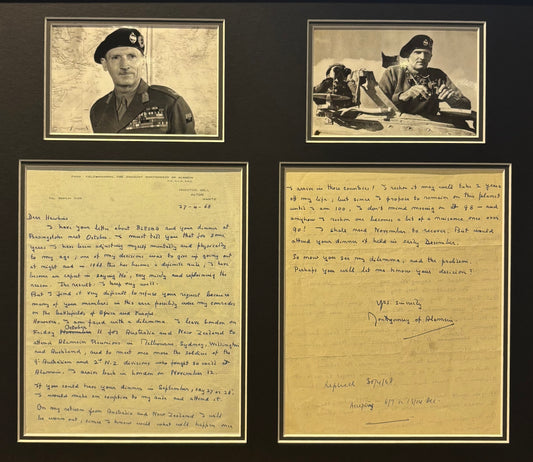 FROM: FIELD-MARSHAL THE VISCOUNT MONTGOMERY OF ALAMEIN
ISINGTON MILL,
ALTON,
HANTS.
27-4-68
Dear Hawkins
I have your letter about BLESMA and your dinner at
next October. I must tell you that for some
years I have been adjusting myself mentally and physically
to my age; one of my decisions was to give up going out
at night and in 1968 this has become a definite rule; I have
become an expert in saying No, very nicely and explaining the
reason. The result: I keep very well.
But I find it very difficult to refuse your request because
many of your members in this area possibly were my comrades
on the battlefields of Africa and Europe.
However, I am faced with a dilemma. I leave London on
October
Friday November 11 for Australia and New Zealand to
attend Alamein Reunions in Melbourne, Sydney, Wellington
and Auckland, and to meet once more the soldiers of the
9 Australian and 2nd N.Z. divisions who fought so well at
Alamein. I arrive back in London on November 12.
If you could have your dinner in September, say 27 or 28,
I would make an exception to my rule and attend it.
On my return from Australia and New Zealand I will
be worn out, since I know well what will happen once
I arrive in those countries! I reckon it may well take 2 years
of my life; but since I propose to remain on this planet
until I am 100, I don't mind moving on at 98 – and
anyhow I reckon one becomes a bit of a nuisance once over
90! I shall need November to recover. But would
attend your dinner if held in early December.
So now you see my dilemma, and the problem.
Perhaps you will let me know your decision?
Yrs. sincerely
Montgomery of Alamein.
replied 30/4/68